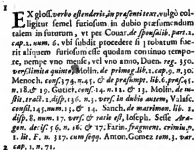 EX gloss. verbo ostenderis, in præsenti text. vulgò col-
ligitur semel furiosum in dubio præsumendum
talem in futurum, vt per Couar. de sponsalib. part. 2.
cap. 2. num. 6. vbi subdit procedere si probatum fue-
rit aliquem furiosum esse quodam continuo tempo-
re, nempe vno mense, vel vno anno, Duen. reg. 350.
vers. limita quinto, Molin. de primog. lib. 1. cap. 9. n. 30.
Menoch. casu 79. n. 45. & de præsumpt. lib. 6. præs. 45.
n. 18. & 19. Gutier. cons. 14. n. 12. & 13. Molin. de iu-
stit. tract. 2. disp. 136. n. 3. vers. in dubio autem, Valasc.
consult. 145. num. 3. & 14. Sanch. de matrimon. lib. 1.
disp. 8. num. 17. vers. & ratio est, Joseph. Sesse Ara-
gon. decis. 56. n. 16. & 17. Farin. fragment. crimin.
lit. F. n. 317. cum seqq. Anton. Gomez tom. 3. var.
cap. 1. n. 71.